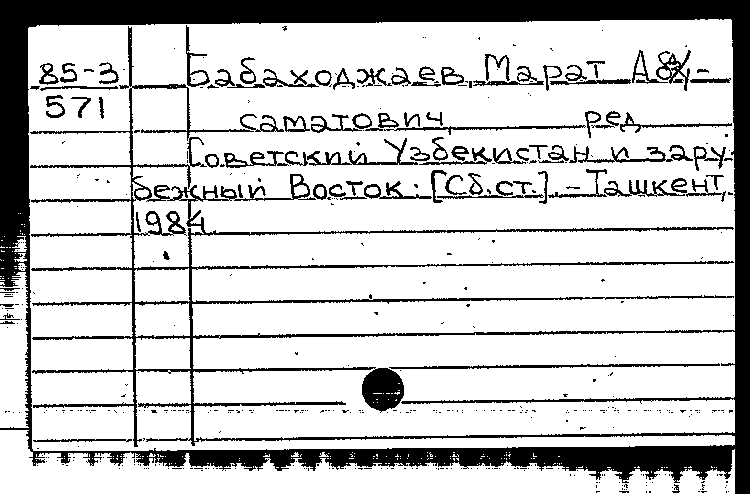 85-3 Бабаходжаев, Марат Аб-
571 саматович, ред.
Советский Узбекистан и зару-
бежный Восток: [Сб.ст.]. - Ташкент,
1984.